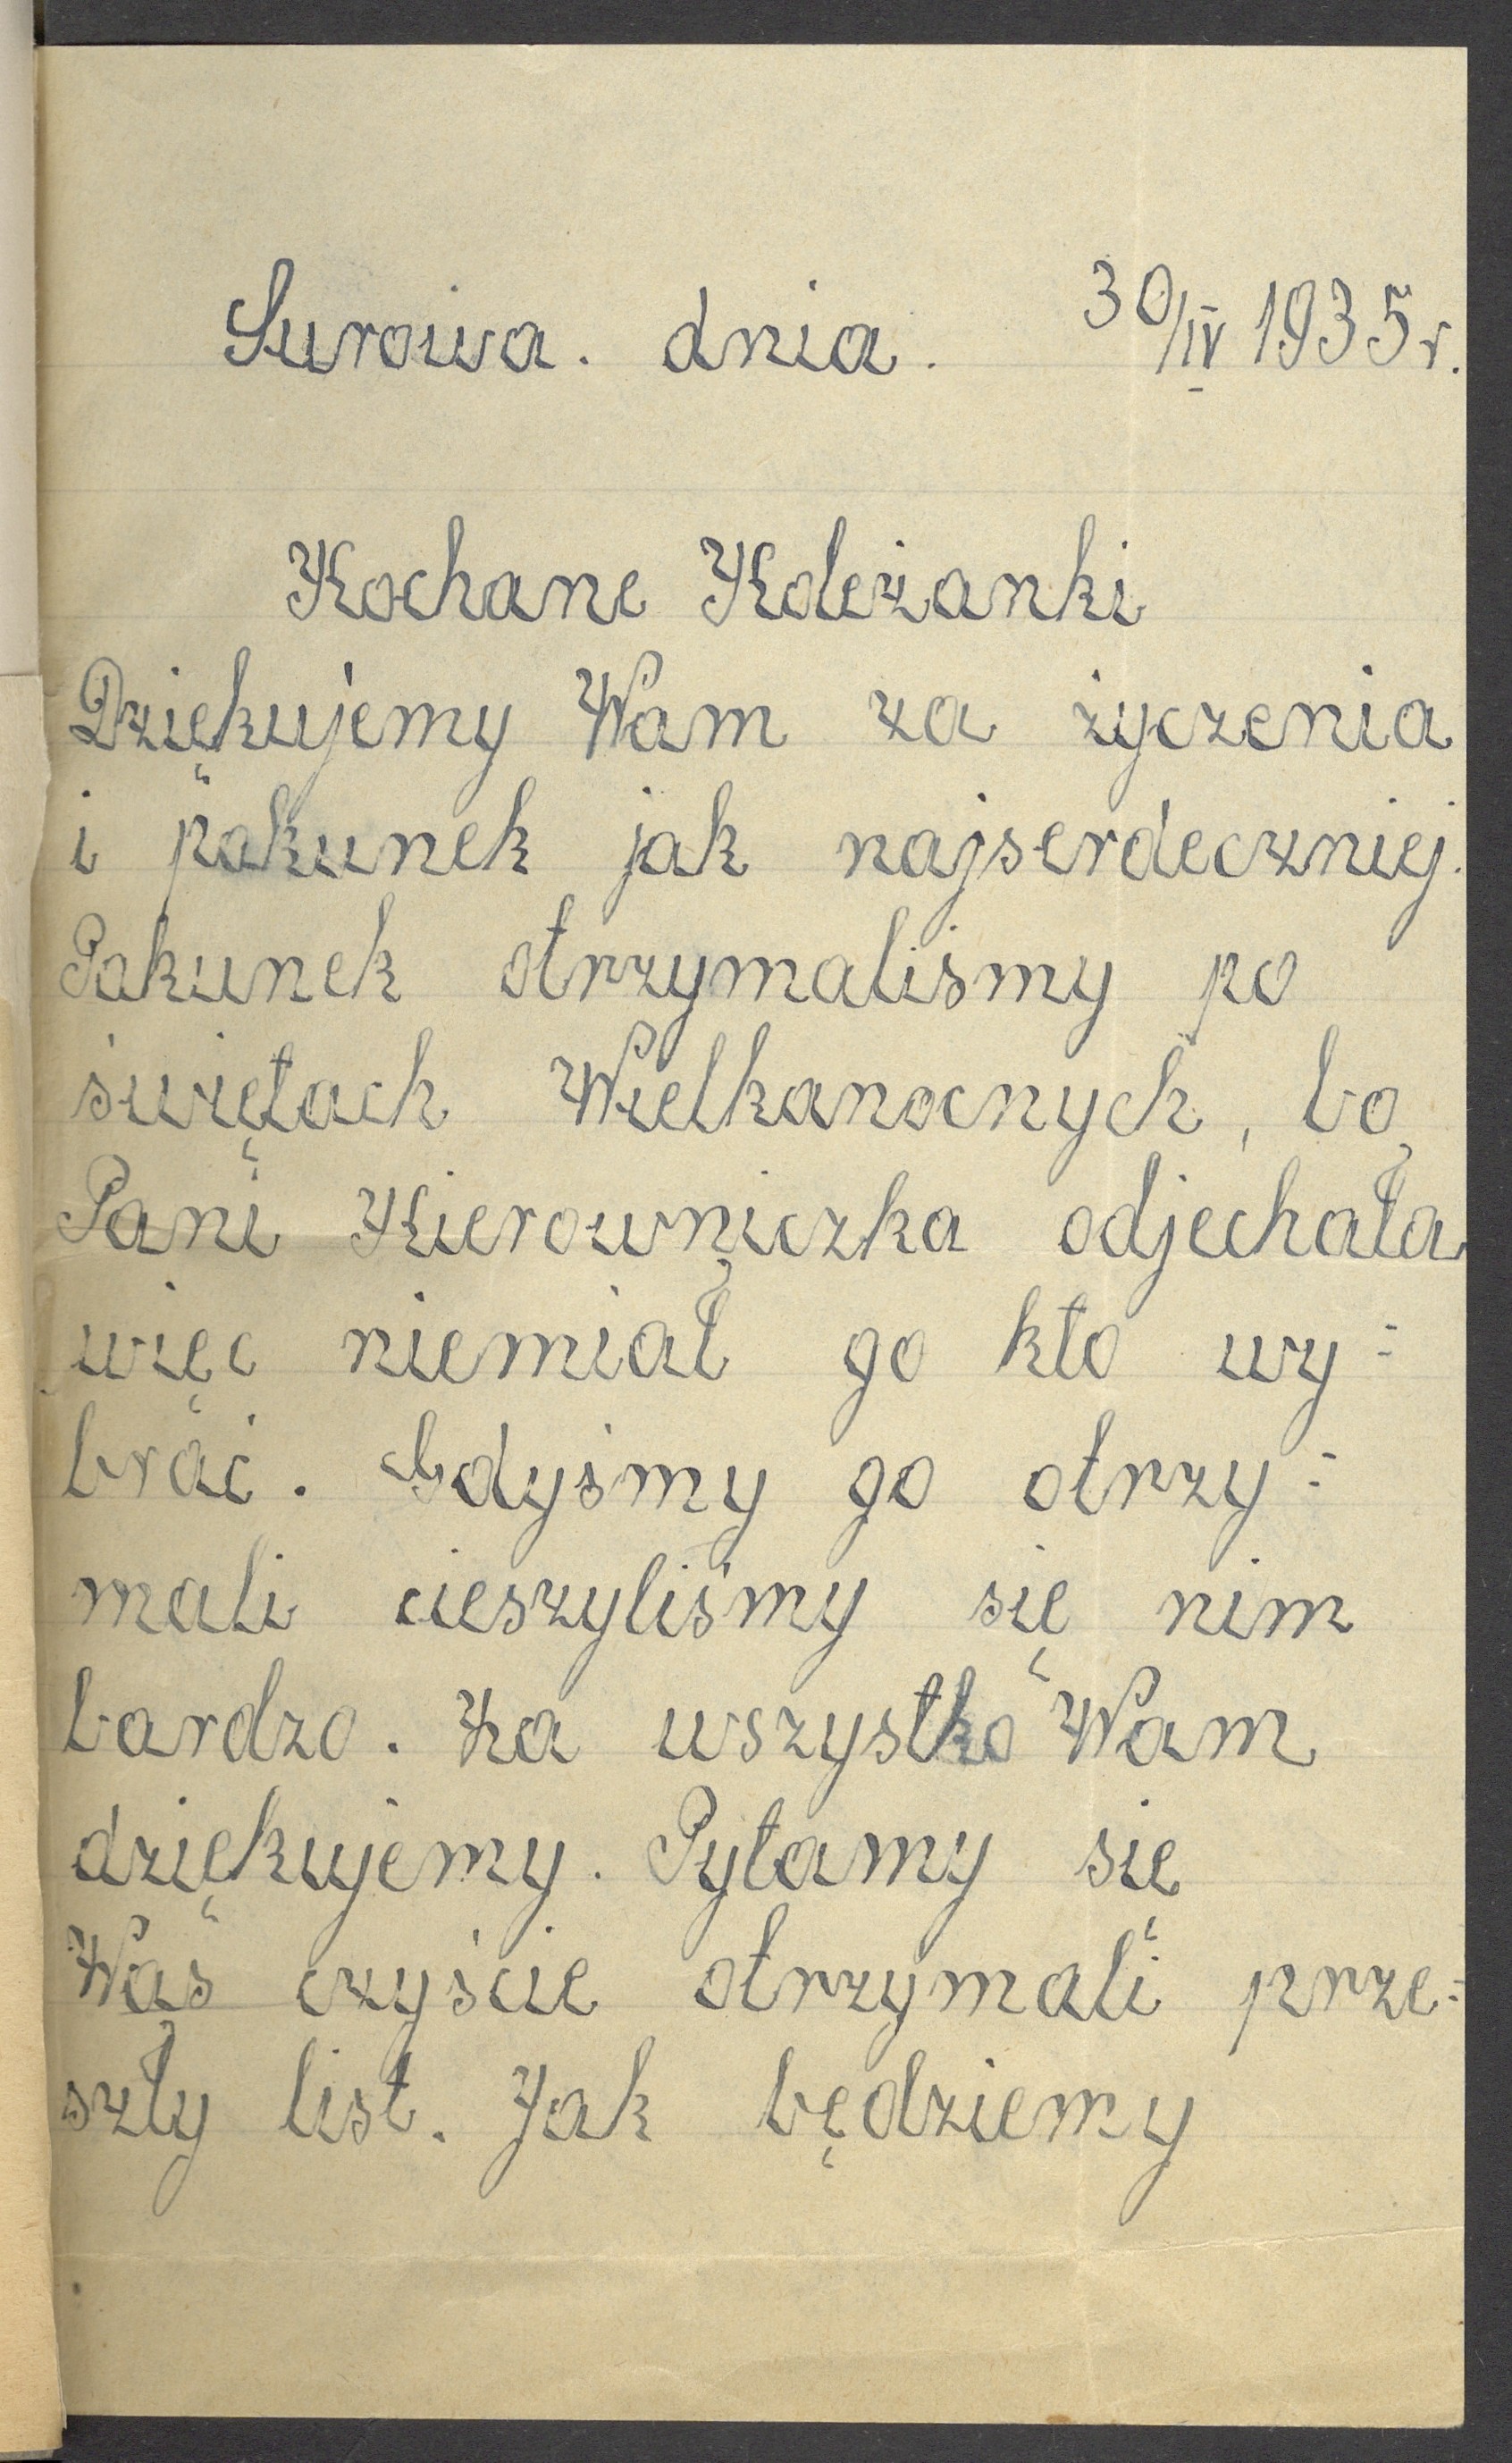 Surowa. dnia. 30/IV 1935 r.
Kochane Koleżanki
Dziękujemy Wam za życzenia
i pakunek jak najserdeczniej.
Pakunek otrzymaliśmy po
świętach Wielkanocnych, bo
Pani Kierowniczka odjechała
więc niemiał go kto wy=
brać. Gdyśmy go otrzy=
mali cieszyliśmy się nim
bardzo. Za wszystko Wam
dziękujemy. Pytamy się
Was czyście otrzymali prze=
szły list. Jak będziemy